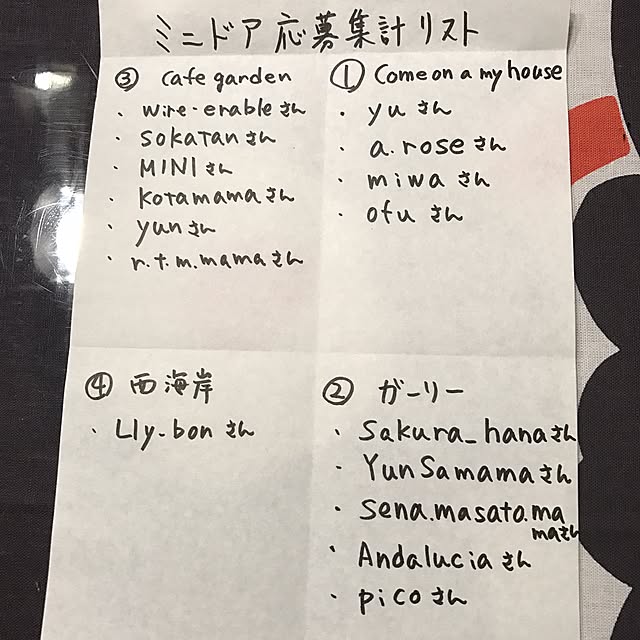 ミニドア応募集計リスト
③ cafe garden
・wire-erableさん
・sokatanさん
・MINIさん
・kotamamaさん
・yunさん
・r.t.m.mamaさん
① Come on a my house
・yuさん
・a.roseさん
・miwaさん
・ofuさん
④ 西海岸
・Lly-bonさん
② ガーリー
・Sakura_hanaさん
・YunSamamaさん
・sena.masato.ma
maさん
・Andaluciaさん
・picoさん